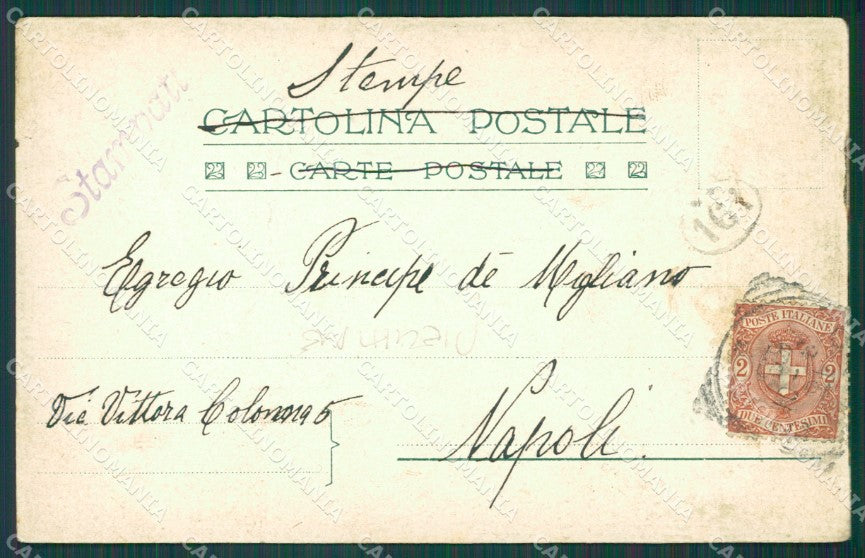 Stampe
Stampati
CARTOLINA POSTALE
CARTE POSTALE
161
Egregio Principe de Migliano
POSTE ITALIANE
2 2
DUE CENTESIMI
Via Vittora Colonna 5
Napoli.
CARTOLINOMANIA